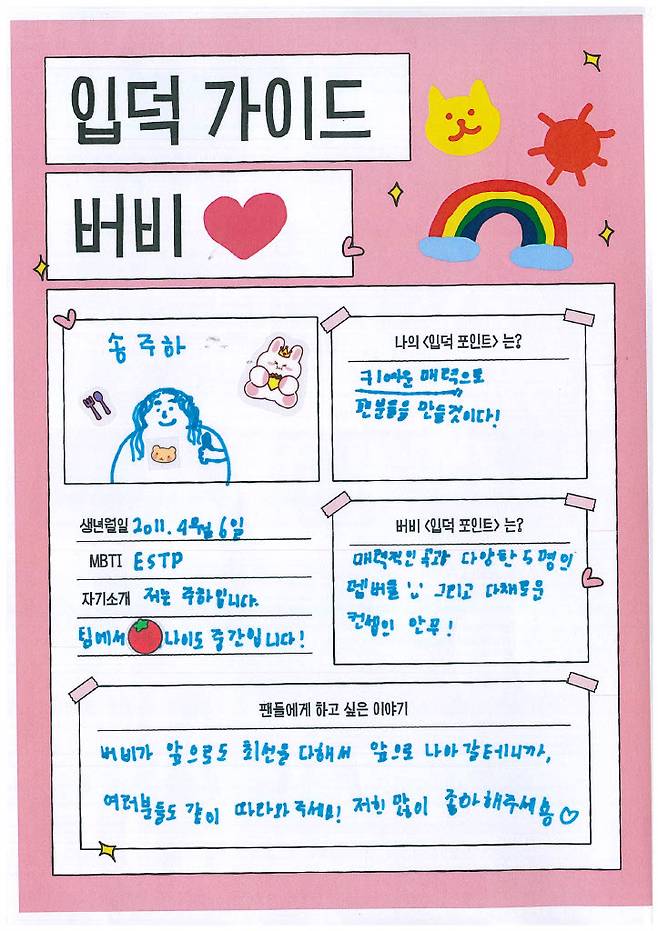 입덕 가이드
버비
송주하
나의 <입덕 포인트>는?
귀여운 매력으로
팬분들을 만들것이다!
생년월일 2011. 4월 6일
MBTI ESTP
자기소개 저는 주하입니다.
팀에서 나이도 중간입니다!
버비 <입덕 포인트>는?
매력적인 곡과 다양한 5명의
멤버들 그리고 다채로운
컨셉의 안무!
팬들에게 하고 싶은 이야기
버비가 앞으로도 최선을 다해서 앞으로 나아갈테니까,
여러분들도 같이 따라와주세요! 저흰 많이 좋아해주세용♡